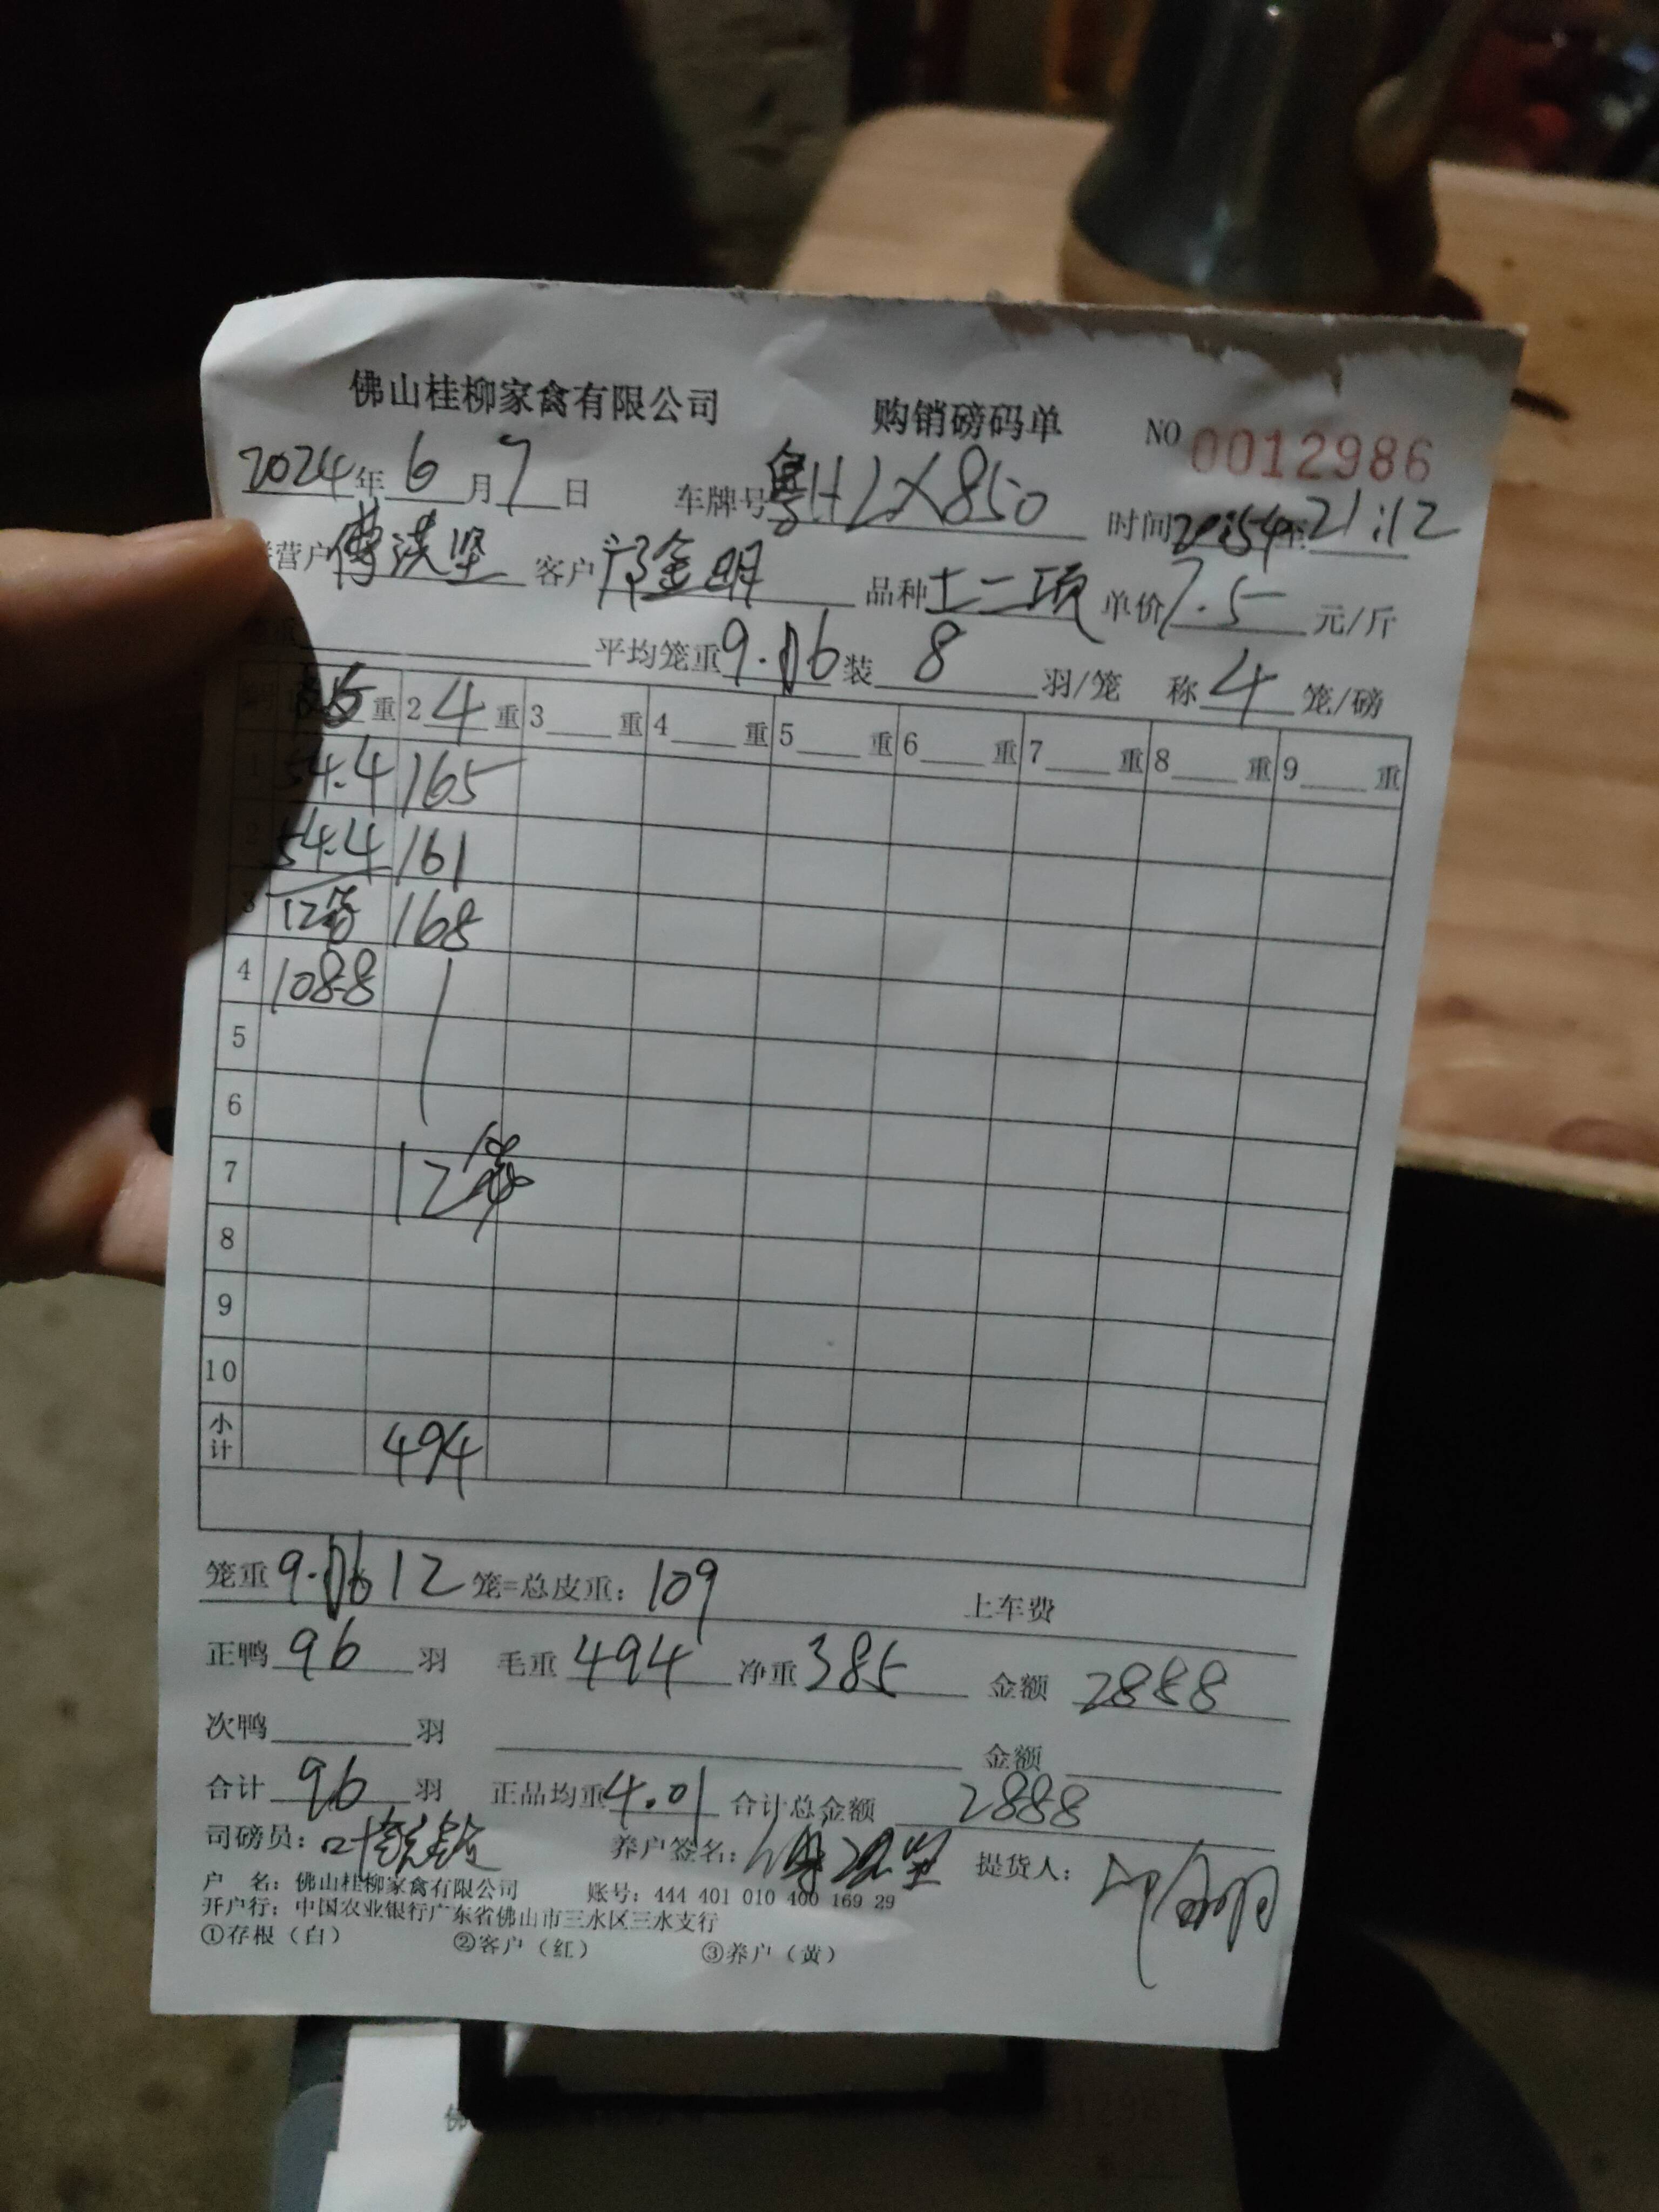 佛山桂柳家禽有限公司 购销磅码单 NO 0012986
2024年6月7日 车牌号粤HLX850 时间20:54至21:12
营户 客户 金明 品种土二项 单价7.5元/斤
平均笼重9.06装8羽/笼 称4笼/磅
编号 重 2 4 重 3 重 4 重 5 重 6 重 7 重 8 重 9 重
1 54.4 165
2 54.4 161
3 12笼 168
4 108.8
5
6
7 12笼
8
9
10
小计 494
笼重9.06 12笼=总皮重：109 上车费
正鸭96羽 毛重494净重385 金额2888
次鸭 羽 金额
合计96羽 正品均重4.01合计总金额2888
司磅员： 养户签名： 提货人：
户 名：佛山桂柳家禽有限公司 账号：444 401 010 400 169 29
开户行：中国农业银行广东省佛山市三水区三水支行
①存根（白） ②客户（红） ③养户（黄）
佛